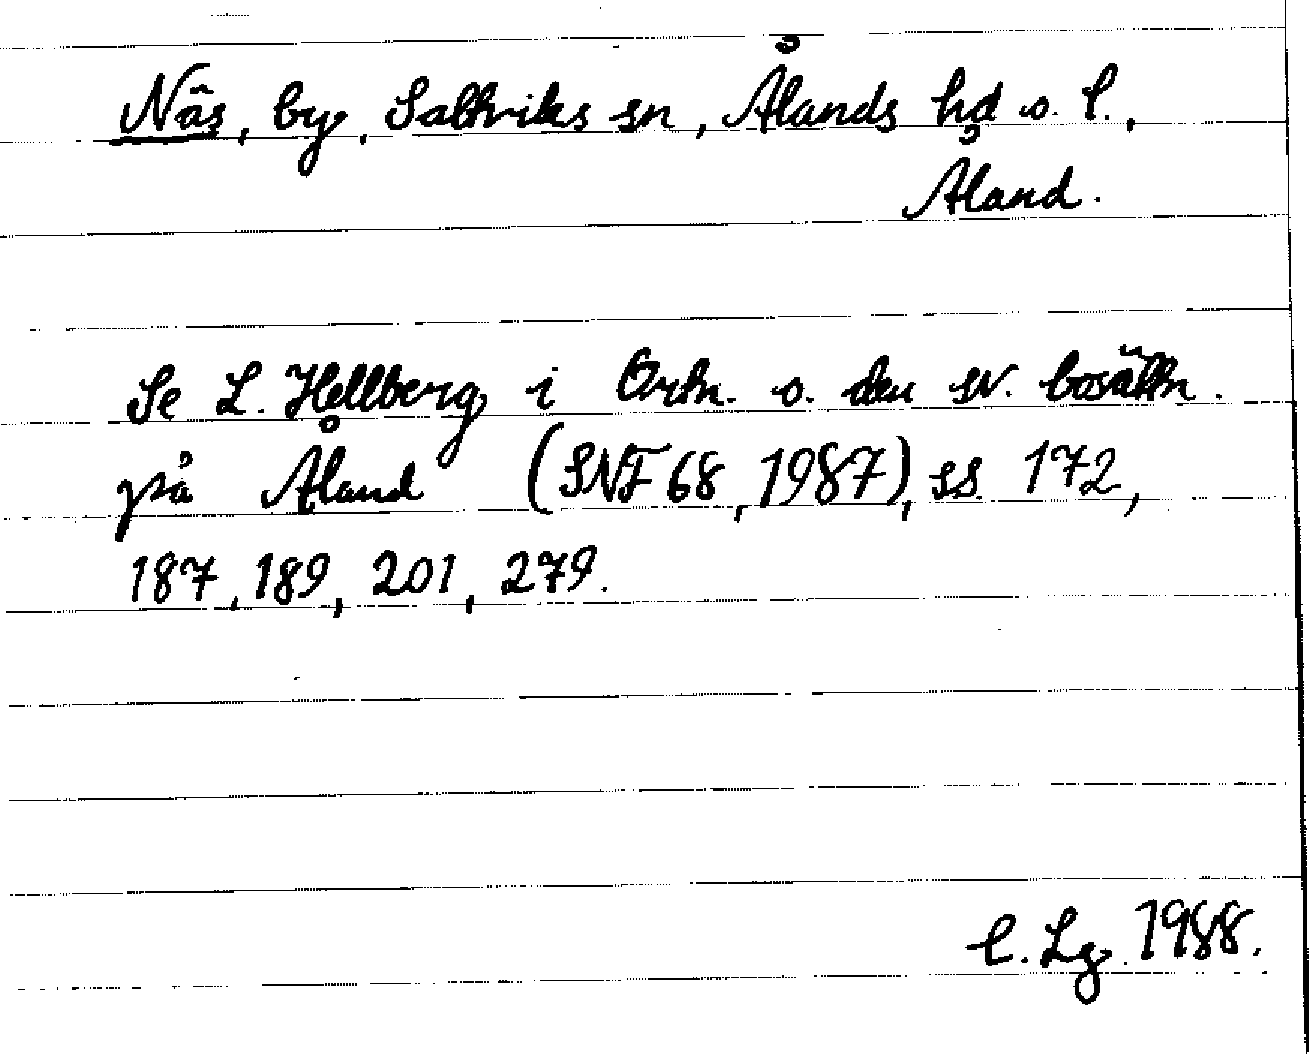 Näs, by, Saltviks sn, Ålands hd o. l.,
Åland.
Se L. Hellberg i Ortn. o. den sv. bosättn.
på Åland (SNF 68, 1987), ss 172,
187, 189, 201, 279.
C. Lg. 1988.